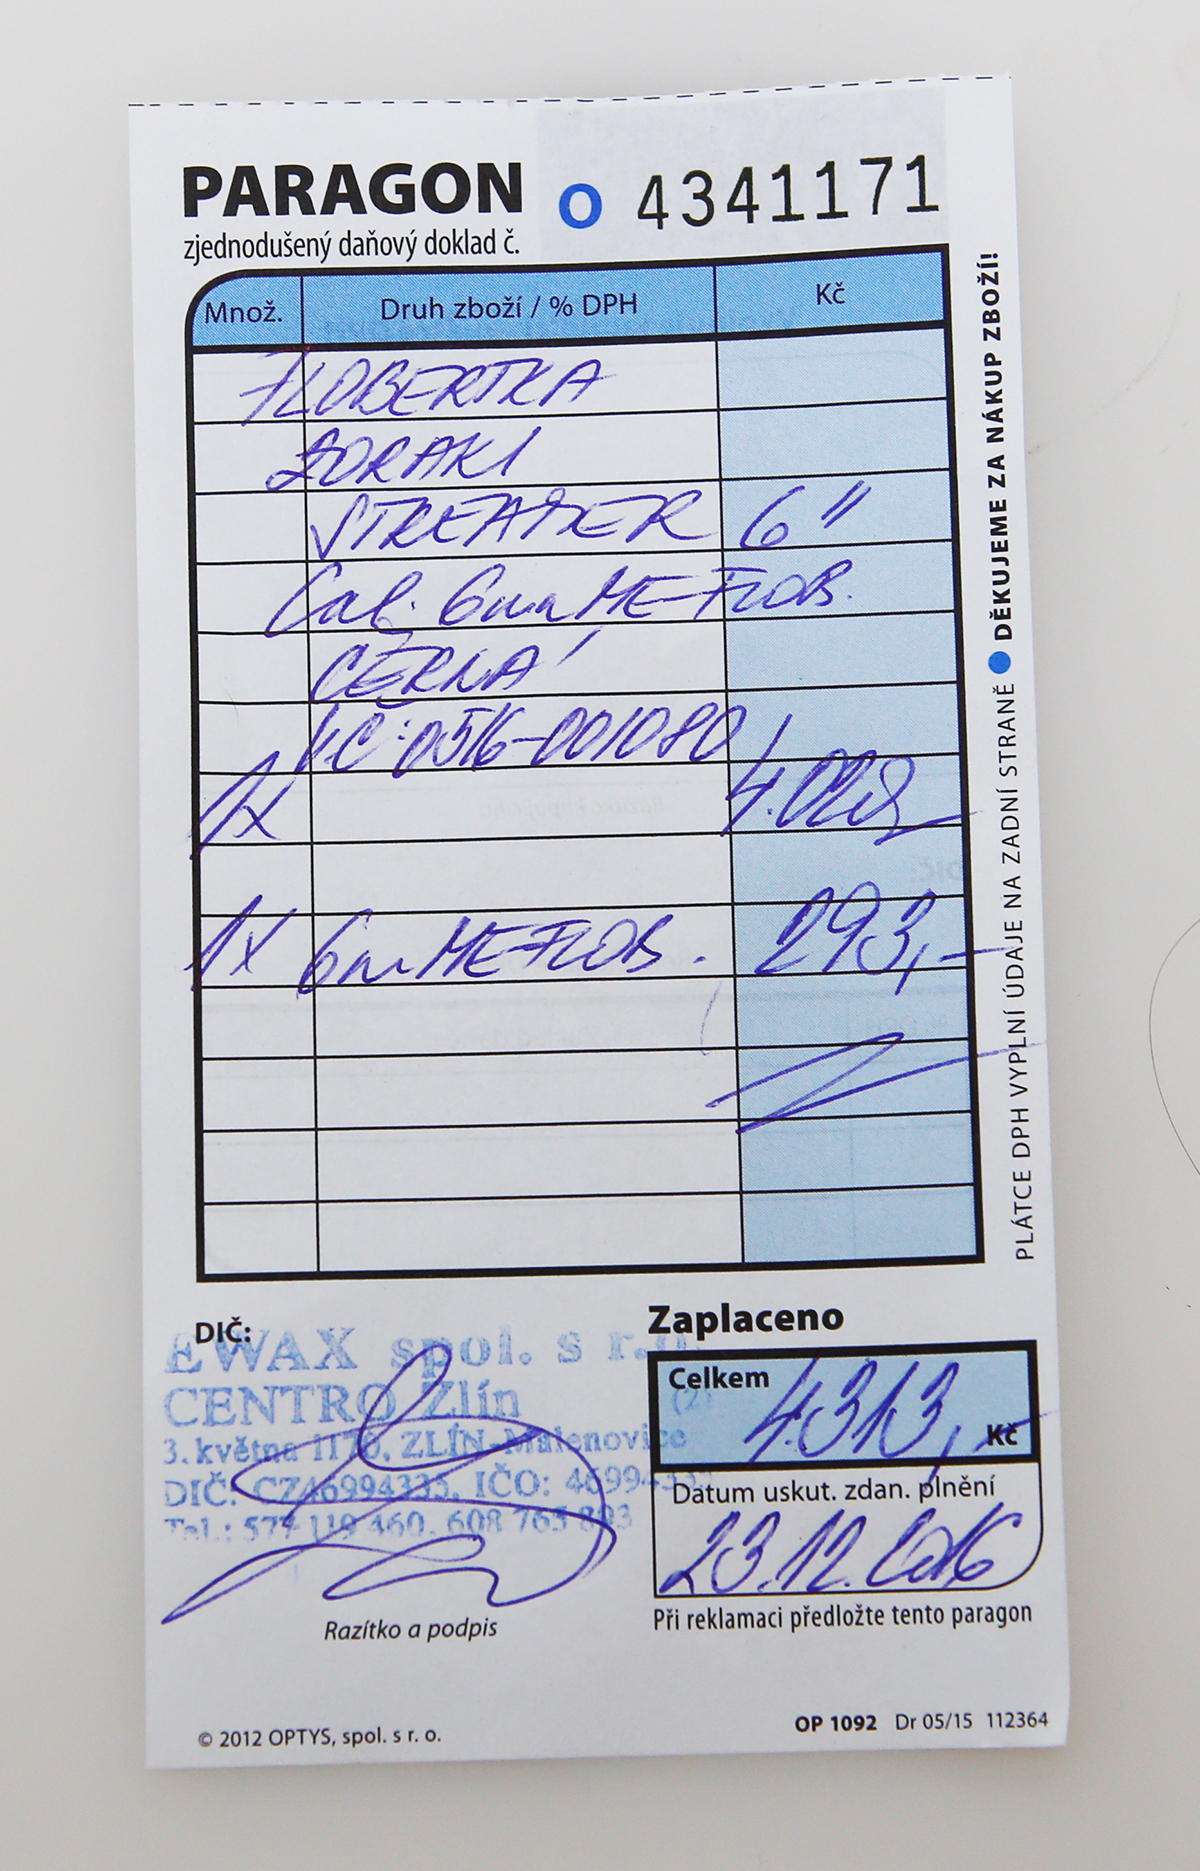 PARAGON O 4341171
zjednodušený daňový doklad č.
Množ. Druh zboží / % DPH Kč
FLOBERTKA
ZORAKI
STREAMER 6"
Cal. 6mm ME-FLOB.
ČERNÁ
VČ: 0516-001080
1x 4.020,-
1x 6mm ME-FLOB. 293,-
PLÁTCE DPH VYPLNÍ ÚDAJE NA ZADNÍ STRANĚ ● DĚKUJEME ZA NÁKUP ZBOŽÍ!
DIČ:
EWAX spol. s r.o.
CENTRO Zlín (2)
3. května 1170, ZLÍN-Malenovice
DIČ: CZ46994335, IČO: 46994335
Tel.: 577 119 460, 608 765 893
Razítko a podpis
Zaplaceno
Celkem 4.313,- Kč
Datum uskut. zdan. plnění
23.12.2016
Při reklamaci předložte tento paragon
© 2012 OPTYS, spol. s r. o.
OP 1092 Dr 05/15 112364